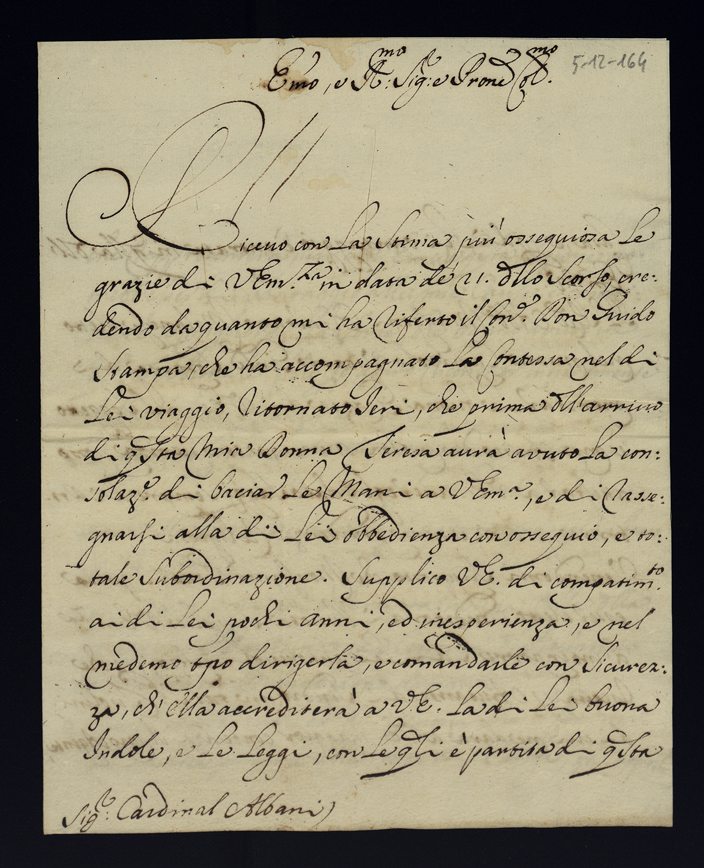 Emo, e Rmo: Sigr: e Prone Colmo.
5-12-164
Ricevo con la stima più ossequiosa le
grazie di VEm.za in data de 21. dllo scorso, cre:
dendo da quanto mi ha riferto il Con.e Don Guido
Stampa, che ha accompagnato la Contessa nel di
Lei viaggio, ritornato Jeri, che prima dll'arrivo
di qsta mia Donna Teresa aurà avuto la con:
solaze. di baciar le Mani a VEma, e di rasse:
gnarsi alla di Lei obbedienza con ossequio, e to:
tale subordinazione. Supplico VE. di compatimto.
ai di Lei pochi anni, ed inesperienza, e nel
medemo tpo dirigerla, e comandarle con sicurez:
za, ch'ella accrediterà a VE. la di Lei buona
Indole, e le Leggi, con le qli è partita di qsta
Sigr: Cardinal Albani)